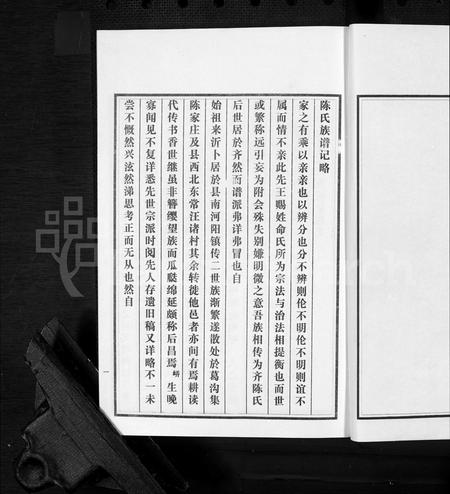 陈氏族谱记略
家之有乘以亲亲也以辨分也分不辨则伦不明伦不明则谊不
属而情不亲此先王赐姓命氏所为宗法与治法相提衡也而世
或繁称远引妄为附会殊失别嫌明微之意吾族相传为齐陈氏
后世居於齐然而谱派弗详弗冒也自
始祖来沂卜居於县南河阳镇传二世族渐繁遂散处於葛沟集
陈家庄及县西北东常汪诸村其余转徙他邑者亦间有焉耕读
代传书香世继虽非簪缨望族而瓜瓞绵延颇称后昌焉㟃生晚
寡闻见不复详悉先世宗派时阅先人存遗旧稿又详略不一未
尝不慨然兴泫然涕思考正而无从也然自